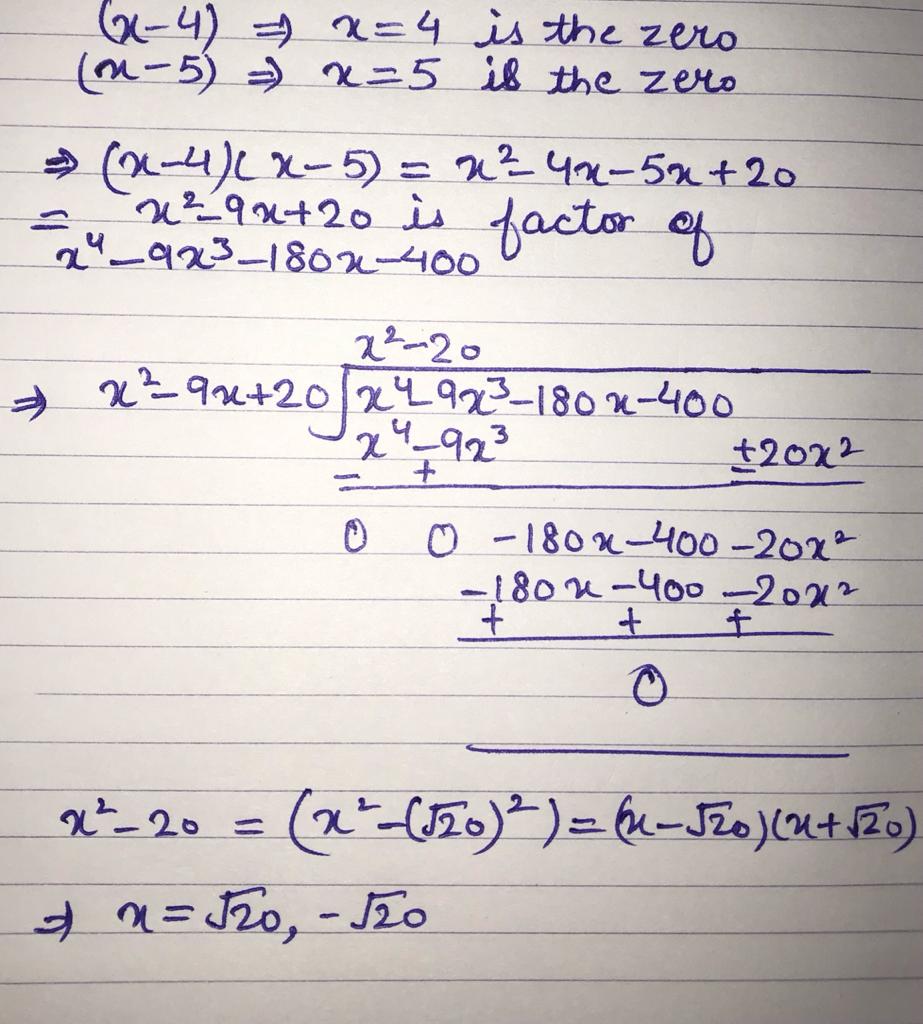 (x-4) ⇒ x=4 is the zero
(x-5) ⇒ x=5 is the zero
⇒ (x-4)(x-5) = x²-4x-5x+20
= x²-9x+20 is factor of
x⁴-9x³-180x-400
x²-20
⇒ x²-9x+20 x⁴-9x³-180x-400
x⁴-9x³ +20x²
- + -
0 0 -180x-400-20x²
-180x-400-20x²
+ + +
0
x²-20 = (x²-(√20)²)=(x-√20)(x+√20)
⇒ x=√20, -√20